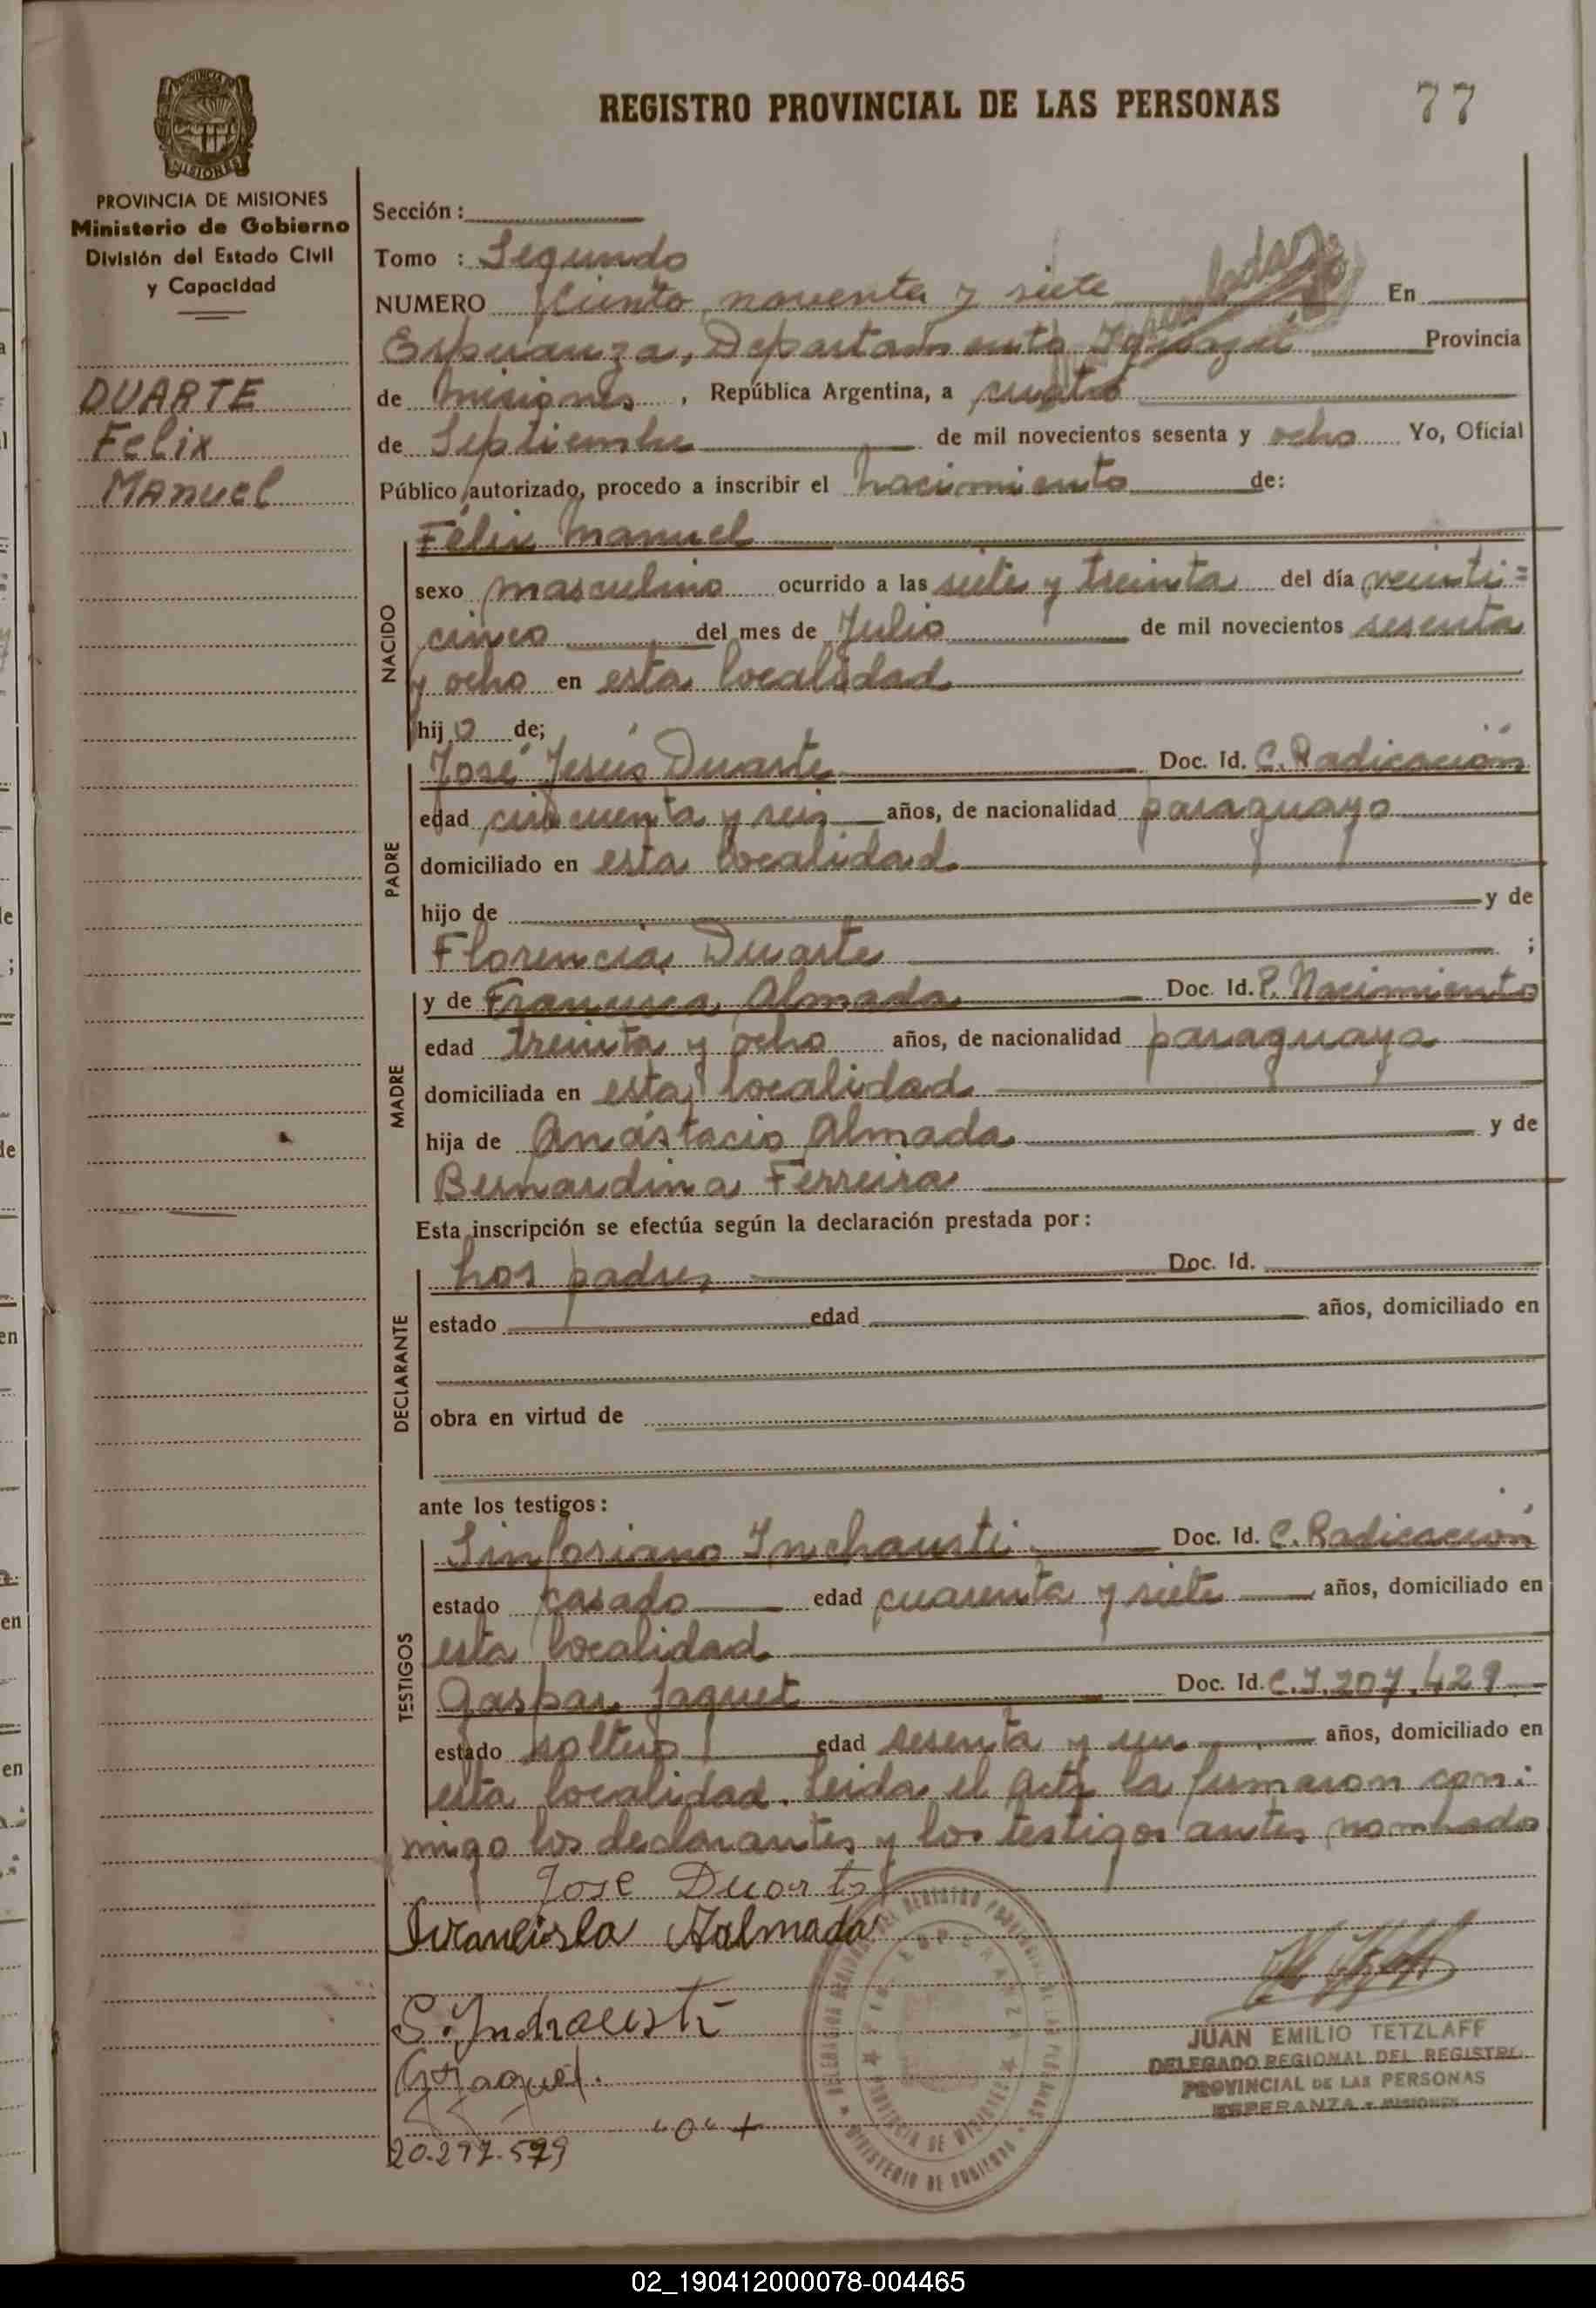 REGISTRO PROVINCIAL DE LAS PERSONAS
77
PROVINCIA DE MISIONES
PROVINCIA DE MISIONES
Ministerio de Gobierno
División del Estado Civil
y Capacidad
DUARTE
Felix
Manuel
Sección :
Tomo : Segundo
NUMERO Ciento noventa y siete En
Esperanza, Departamento Iguazú Provincia
de Misiones , República Argentina, a cuatro
de Septiembre de mil novecientos sesenta y ocho Yo, Oficial
Público autorizado, procedo a inscribir el nacimiento de:
NACIDO
Félix Manuel
sexo masculino ocurrido a las siete y treinta del día veinti=
cinco del mes de Julio de mil novecientos sesenta
y ocho en esta localidad
hijo de;
PADRE
José Jesús Duarte Doc. Id. C. Radicación
edad cincuenta y seis años, de nacionalidad paraguayo
domiciliado en esta localidad
hijo de y de
Florencia Duarte ;
MADRE
y de Francisca Almada Doc. Id. P. Nacimiento
edad treinta y ocho años, de nacionalidad paraguaya
domiciliada en esta localidad
hija de Anastacio Almada y de
Bernardina Ferreira
Esta inscripción se efectúa según la declaración prestada por:
DECLARANTE
Los padres Doc. Id.
estado edad años, domiciliado en
obra en virtud de
ante los testigos:
TESTIGOS
Sinforiano Inchausti Doc. Id. C. Radicación
estado casado edad cuarenta y siete años, domiciliado en
esta localidad
Gaspar Jaquet Doc. Id. C.I. 207.429
estado soltero edad sesenta y un años, domiciliado en
esta localidad. Leida el acta la firmaron con:
migo los declarantes y los testigos antes nombrado
José Duarte
Francisca Aalmada
S. Inchausti
G. Jaquet.
"0" +
20.297.579
DELEGACION REGIONAL DEL REGISTRO PROVINCIAL DE LAS PERSONAS
ESPERANZA
PROVINCIA DE MISIONES
MINISTERIO DE GOBIERNO
JUAN EMILIO TETZLAFF
DELEGADO REGIONAL DEL REGISTRO
PROVINCIAL DE LAS PERSONAS
ESPERANZA - MISIONES
02_190412000078-004465